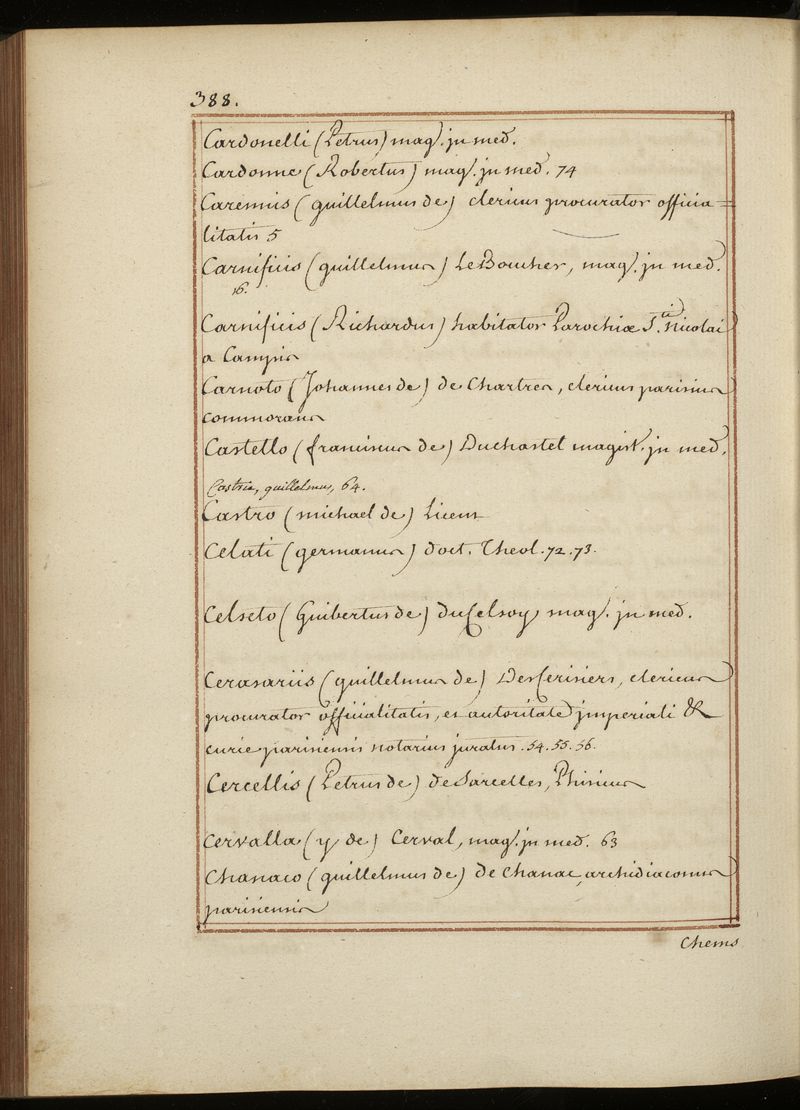 388.
Cardonelli (Petrus) mag. jn med.
Cardonne (Robertus) mag. jn med. 74
Caremis (guillelmus de) clericus procurator officia=
litatis 5
Carnificis (guillelmus) LeBoucher, mag. jn med.
16.
Carnificis (Richardus) habitator Parochiæ S.ti Nicolai
a Campis
Carnoto (Johannes de) de Chartres, clericus parisius
commorans
Castello (franciscus de) Duchastel magist. jn med.
Castris, guillelmus, 64.
Castro (michael de) Licent
Celati (germanus) doct. Theol. 72. 73.
Celseto (Guibertus de) du Celsoy mag. jn med.
Cerasariis (guillelmus de) Des Cerisiers, clericus
procurator officialitatis, et autoritate jmperiali &
curie parisiensis notarius juratus. 54. 55. 56.
Cercellis (Petrus de) de Sarcelles, Phisicus
Cervalla (y de) Cerval, mag. jn med. 63
Chanaco (guillelmus de) de Chanac, archidiaconus
parisiensis
Chems